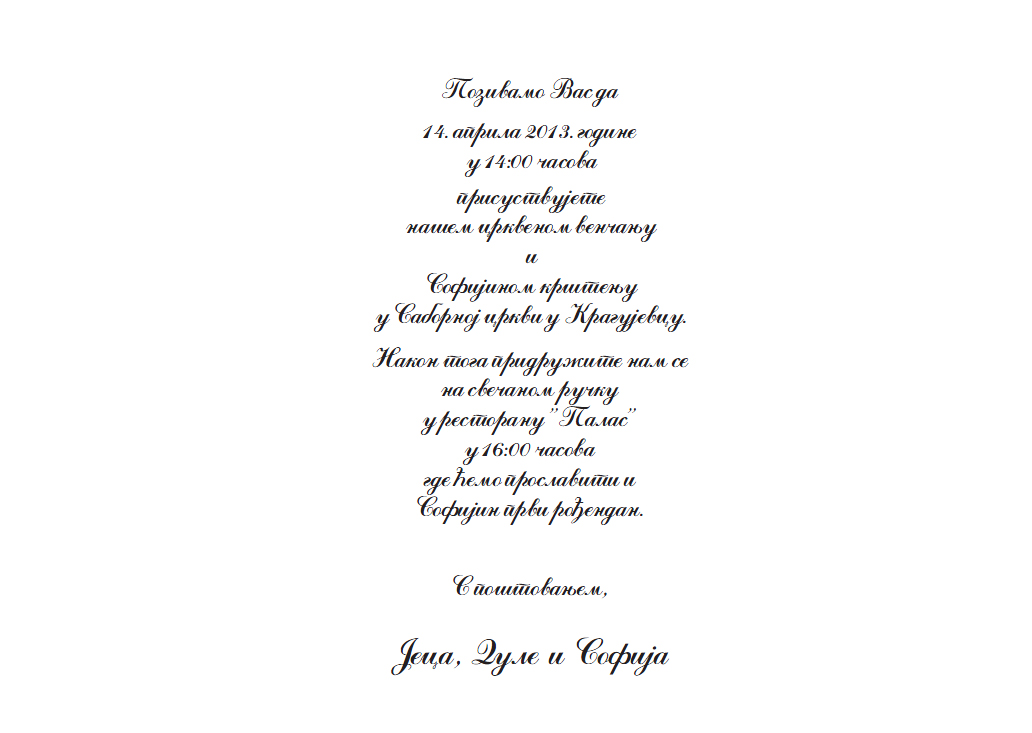 Позивамо Вас да
14. априла 2013. године
у 14:00 часова
присуствујете
нашем црквеном венчању
и
Софијином крштењу
у Саборној цркви у Крагујевцу.
Након тога придружите нам се
на свечаном ручку
у ресторану ”Палас”
у 16:00 часова
где ћемо прославити и
Софијин први рођендан.
С поштовањем,
Јеца, Дуле и Софија